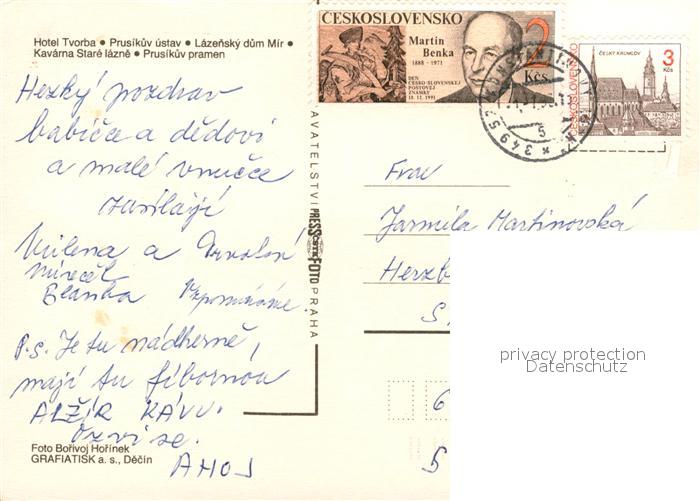 Hotel Tvorba ● Prusíkův ústav ● Lázeňský dům Mír ●
Kavárna Staré lázně ● Prusíkův pramen
Hezký pozdrav
babičce a dědovi
a malé vnučce
zasílají
Milena a
Mireček
Blanka Vzpomínáme.
P.S. Je tu nádherně,
mají tu fíbornou
ALŽÍR KÁVU.
Ozvi se.
AHOJ
Foto Bořivoj Hořínek
GRAFIATISK a. s., Děčín
AVATELSTVÍ PRESSFOTO PRAHA
ČESKOSLOVENSKO
Martin
Benka
1888 - 1971
DEN
ČESKO-SLOVENSKEJ
POŠTOVEJ
ZNÁMKY
18. 12. 1991
2
Kčs
ČESKÝ KRUMLOV
3
Kčs
ČESKOSLOVENSKO
349 5
5
Frau
Jarmila Martinovská
Herzb
S
6
5
privacy protection
Datenschutz